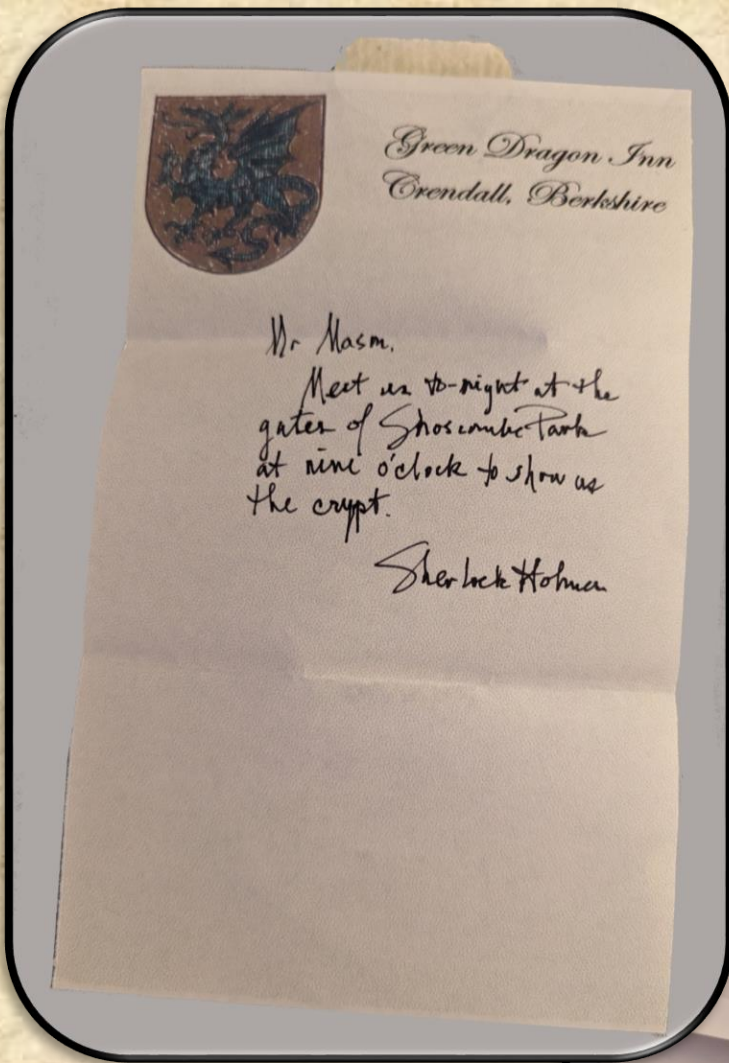 Green Dragon Inn
Crendall, Berkshire
Mr Mason.
Meet us to-night at the
gates of Shoscombe Park
at nine o'clock to show us
the crypt.
Sherlock Holmes